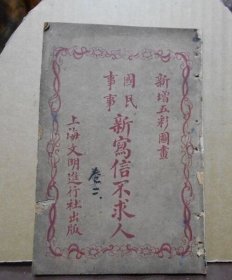 新增五彩圖畫
國民事事
新寫信不求人
卷二
上海文明進行社出版